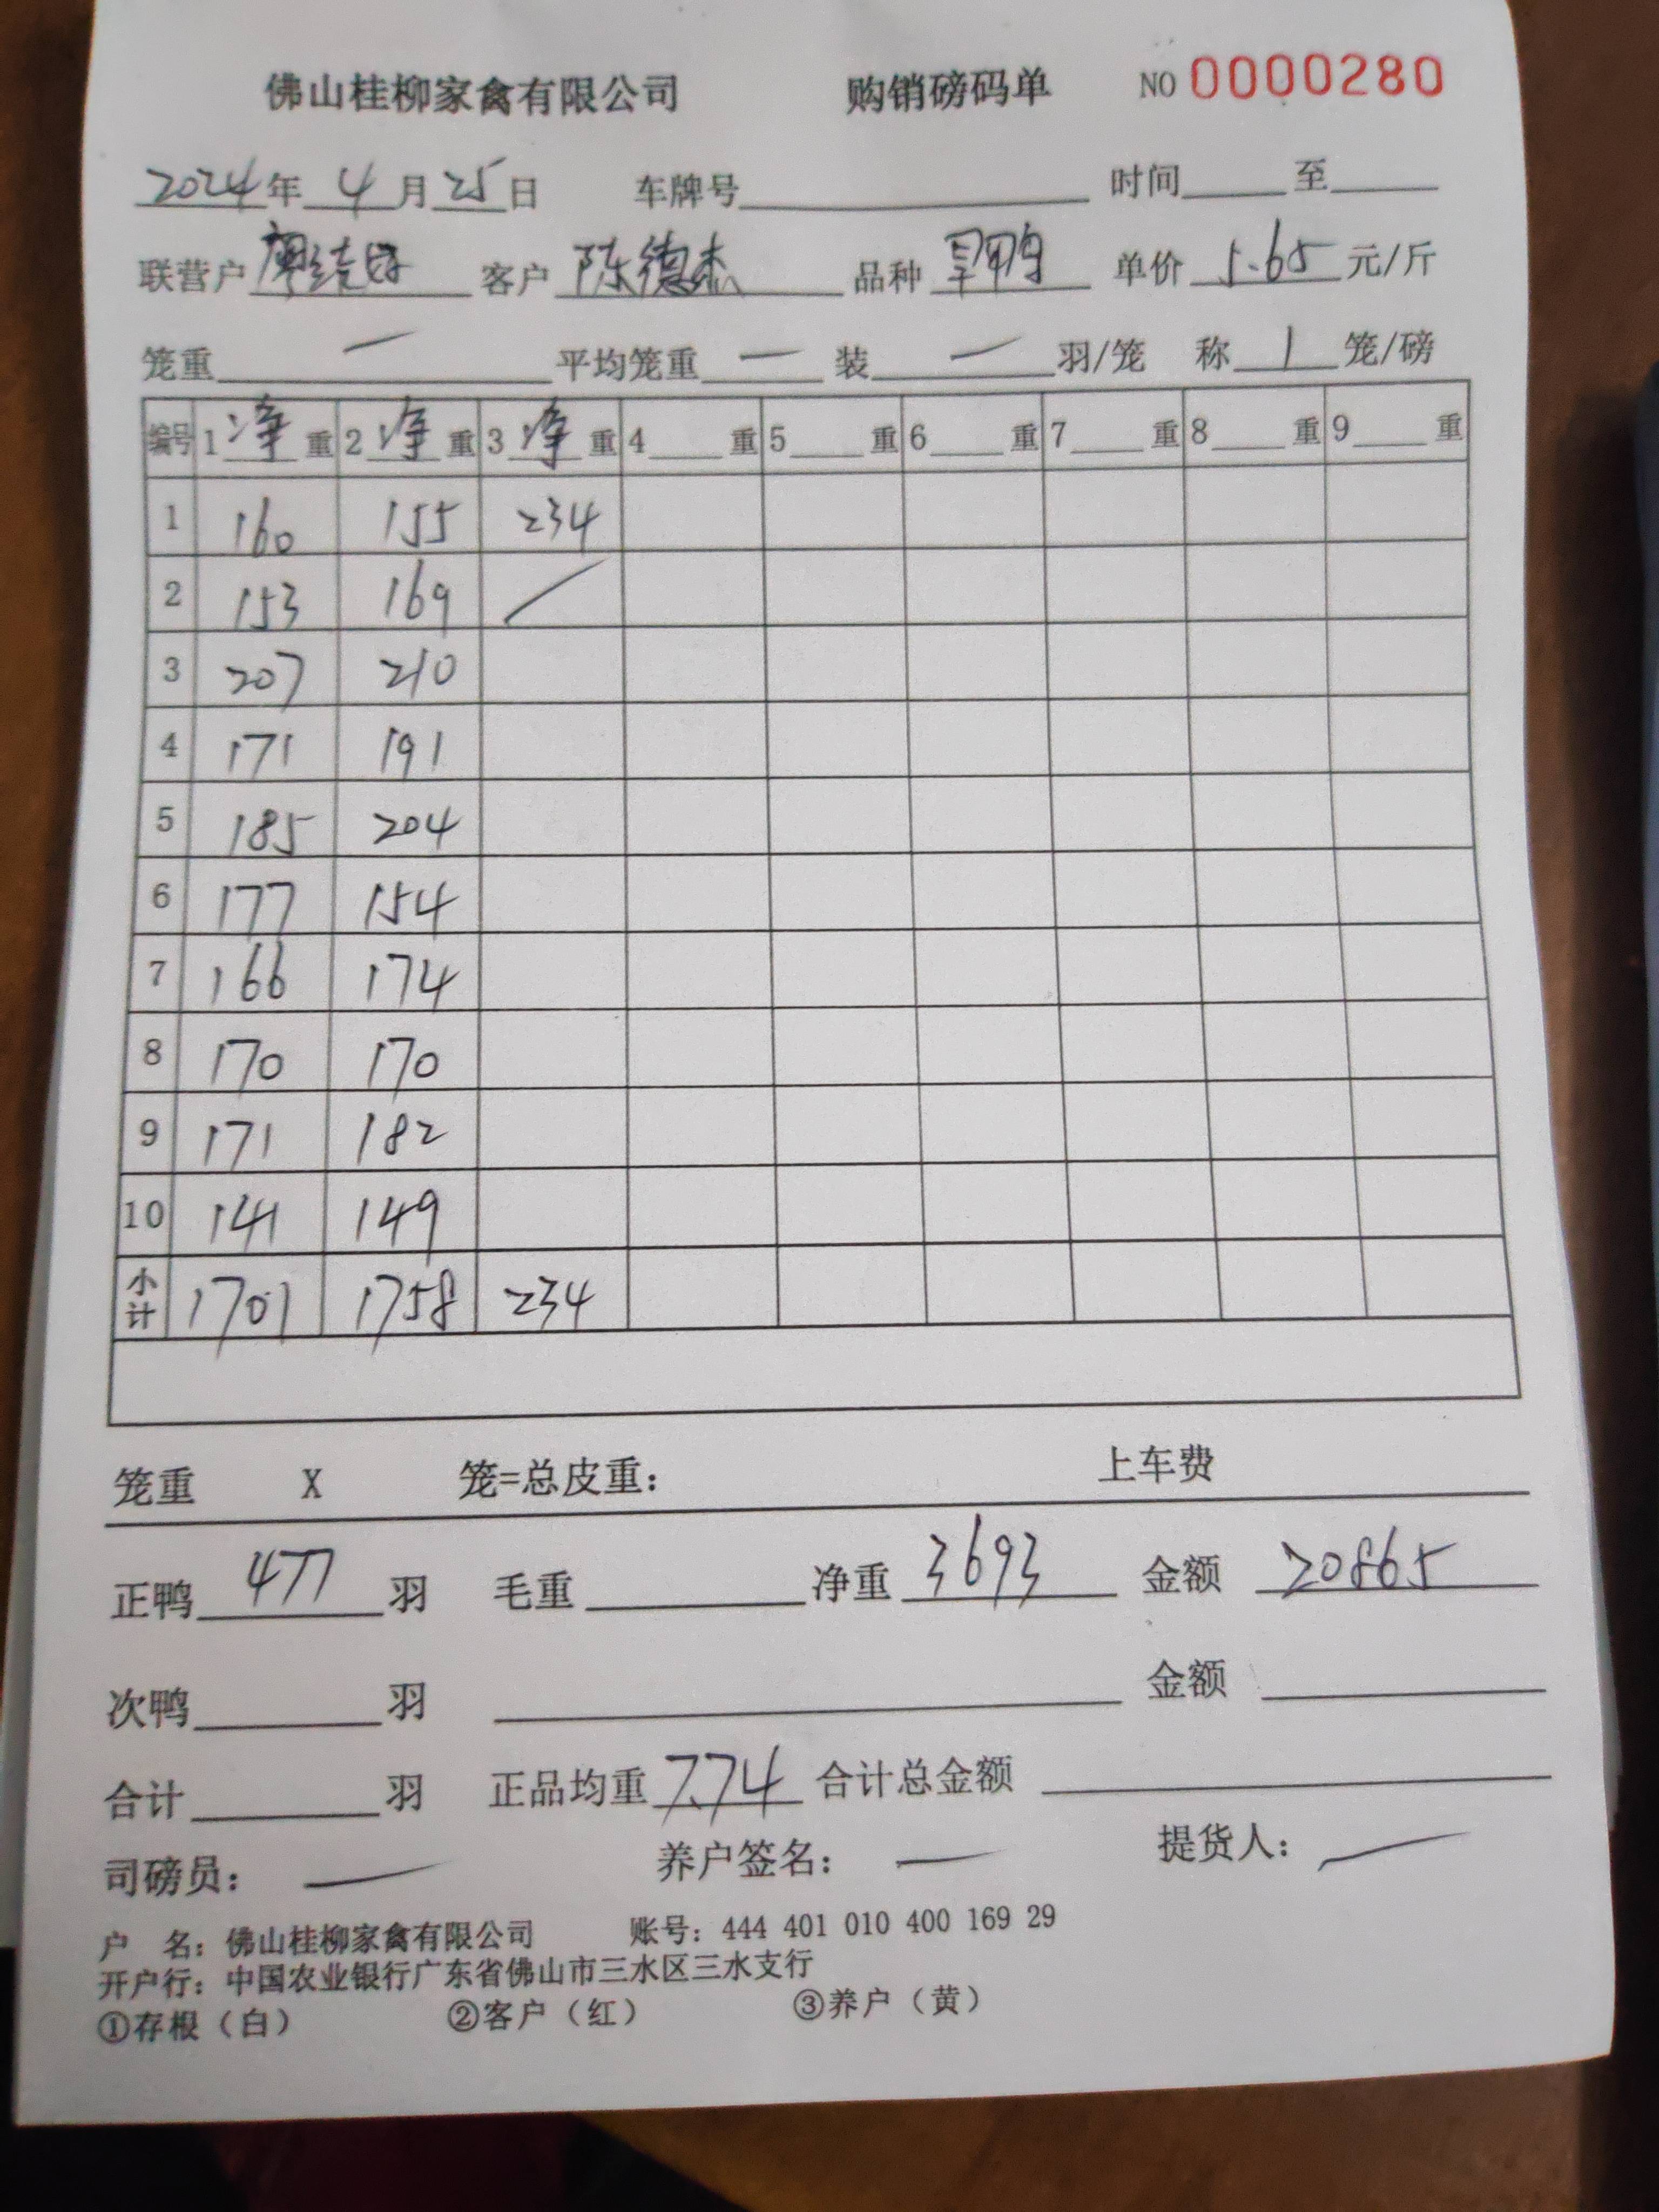 佛山桂柳家禽有限公司 购销磅码单 NO 0000280
2024年 4月25日 车牌号 时间 至
联营户 客户 陈德杰 品种 旱鸭 单价 5.65 元/斤
笼重 一 平均笼重 一 装 一 羽/笼 称 1 笼/磅
编号 1 净 重 2 净 重 3 净 重 4 重 5 重 6 重 7 重 8 重 9 重
1 160 155 234
2 153 169 /
3 207 210
4 171 191
5 185 204
6 177 154
7 166 174
8 170 170
9 171 182
10 141 149
小计 1701 1758 234
笼重 X 笼=总皮重: 上车费
正鸭 477 羽 毛重 净重 3693 金额 20865
次鸭 羽 金额
合计 羽 正品均重 7.74 合计总金额
司磅员: 一 养户签名: 一 提货人: 一
户 名: 佛山桂柳家禽有限公司 账号: 444 401 010 400 169 29
开户行: 中国农业银行广东省佛山市三水区三水支行
①存根（白） ②客户（红） ③养户（黄）